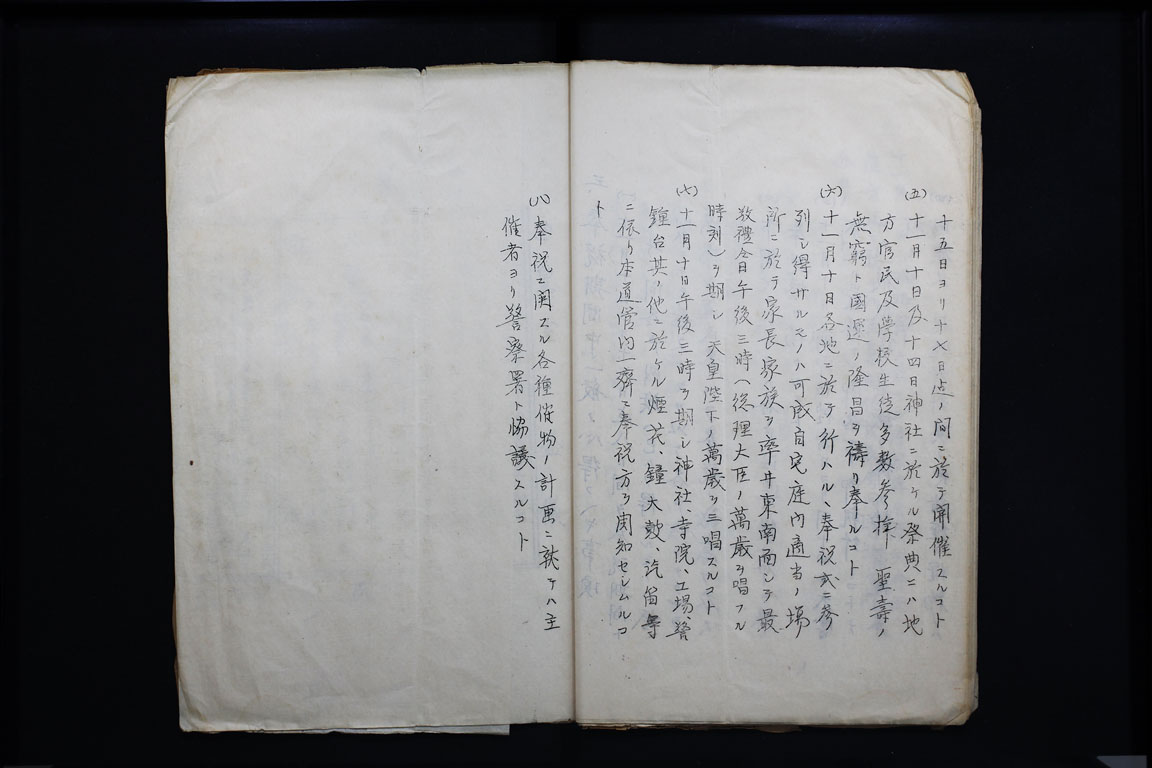 十五日ヨリ十七日迄ノ間ニ於テ開催スルコト
(五)十一月十日及十四日神社ニ於ケル祭典ニハ地
方官民及學校生徒多数参拝 聖壽ノ
無窮ト國運ノ隆昌ヲ禱リ奉ルコト
(六)十一月十日各地ニ於テ行ハル、奉祝式ニ参
列シ得サルモノハ可成自宅庭内適当ノ場
所ニ於テ家長家族ヲ率ヰ東南面シテ最
敬禮仝日午後三時(総理大臣ノ萬歳ヲ唱フル
時刻)ヲ期シ 天皇陛下ノ萬歳ヲ三唱スルコト
(七)十一月十日午後三時ヲ期シ神社、寺院、工場、警
鐘台其ノ他ニ於ケル煙花、鐘太鼓、汽笛等
ニ依リ本道管内一齊ニ奉祝方ヲ周知セシムルコ
ト
(八)奉祝ニ関スル各種催物ノ計画ニ就テハ主
催者ヨリ警察署ト協議スルコト